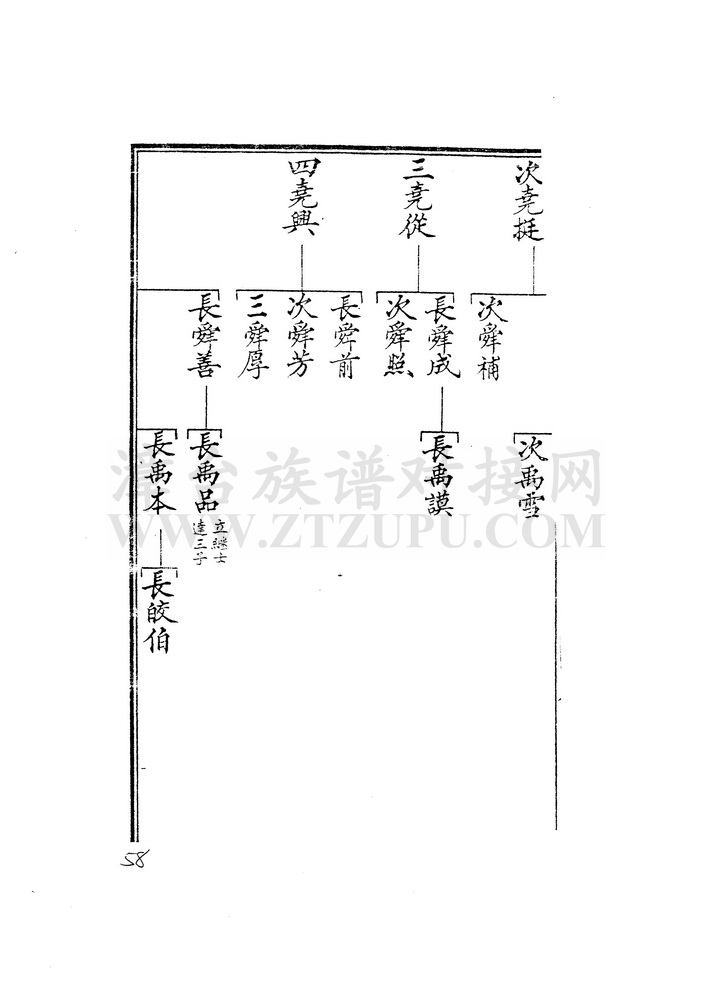 次堯挺
三堯從
四堯興
次舜補
長舜成
次舜照
長舜前
次舜芳
三舜厚
長舜善
次禹雪
長禹謨
長禹品
立繼士
達三子
長禹本
長皎伯
漳台族谱对接网
WWW.ZTZUPU.COM
58